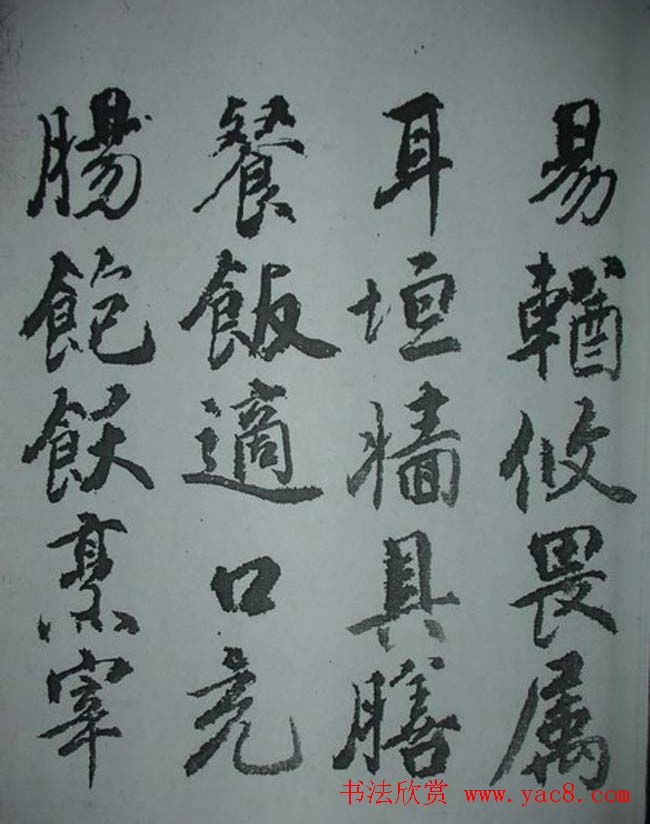 易輶攸畏属
耳垣墙具膳
餐飯適口充
腸飽飫烹宰
书法欣赏 www.yac8.com